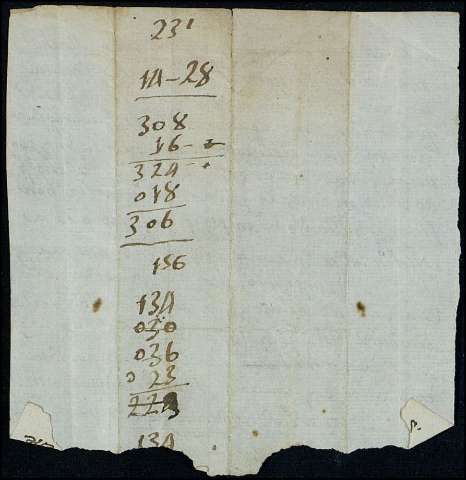 231
14-28
308
16-
324
018
306
156
134
030
036
0 23
223
134